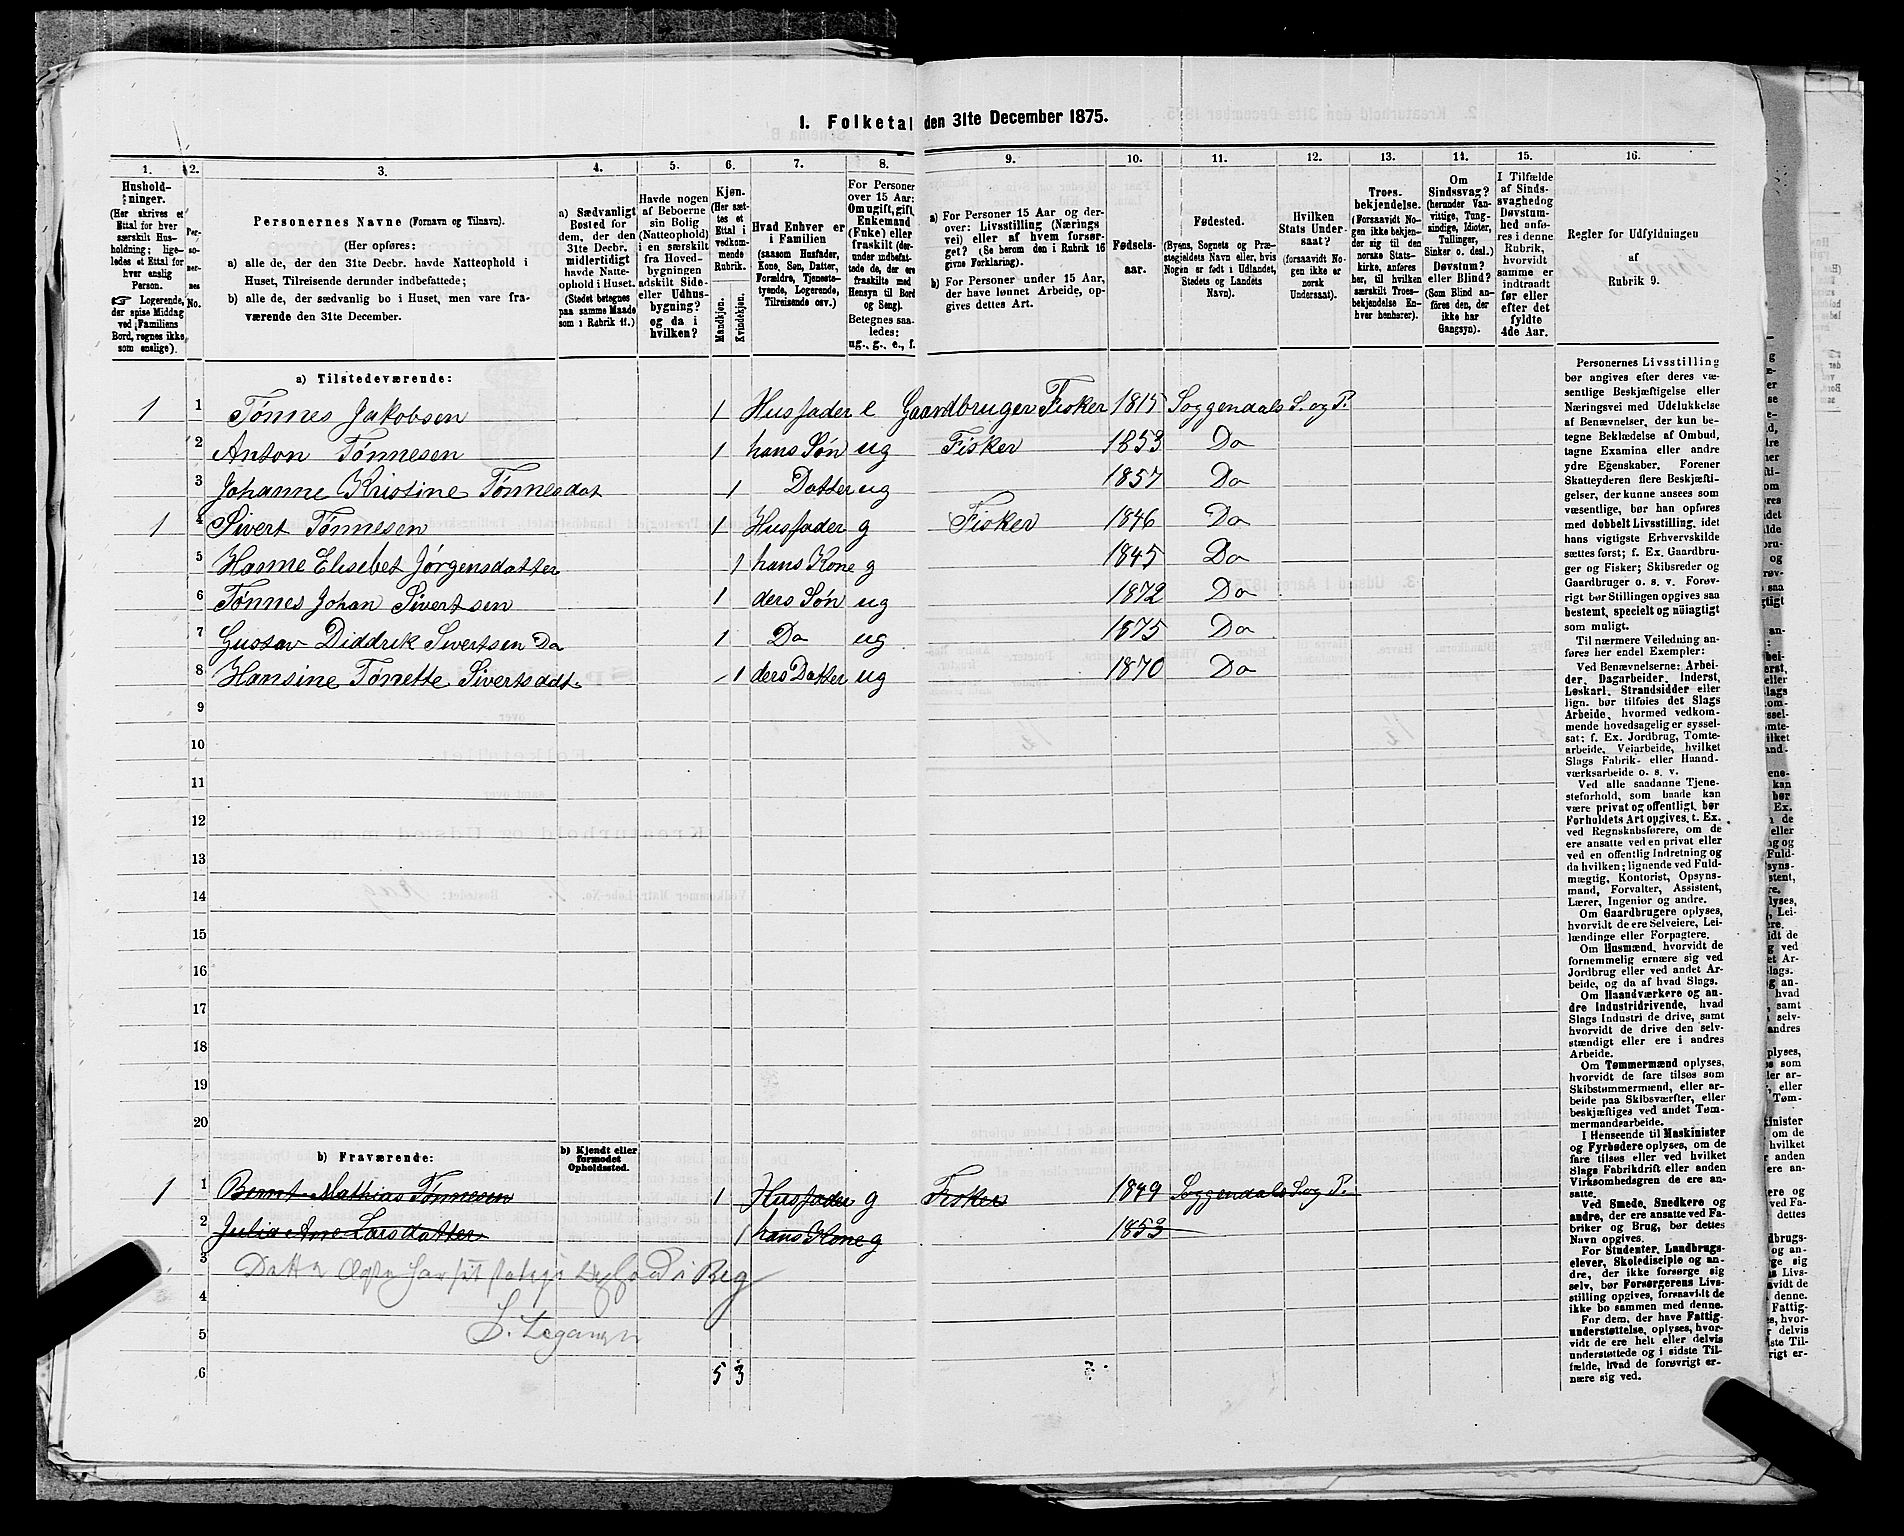 1. Folketal den 31te December 1875.
1. 2. 3. 4. 5. 6. 7. 8. 9. 10. 11. 12. 13. 14. 15. 16.
Hushold-
ninger.
(Her skrives et
Ettal for hver
særskilt Hus-
holdning; lige-
ledes et Ettal for
hver enslig
Person.
☞ Logerende,
der spise Middag
ved Familiens
Bord, regnes ikke
som enslige).
Per-
so-
ner-
nes
No.
Personernes Navne (Fornavn og Tilnavn).
(Her opføres:
a) alle de, der den 31te Decbr. havde Natteophold i
Huset, Tilreisende derunder indbefattede;
b) alle de, der sædvanlig bo i Huset, men vare fra-
værende den 31te December.
a) Sædvanligt
Bosted for
dem, der den
31te Decbr.
midlertidigt
havde Natte-
ophold i Huset.
(Stedet betegnes
paa samme Maade
som i Rubrik 11.)
Havde nogen
af Beboerne
sin Bolig
(Natteophold)
i en særskilt
fra Hoved-
bygningen
adskilt Side-
eller Udhus-
bygning?
og da i
hvilken?
Kjøn.
(Her sæt-
tes et
Ettal i
vedkom-
mende
Rubrik.
Mandkjøn.
Kvindekjøn.
Hvad Enhver er
i Familien
(saasom Husfader,
Kone, Søn, Datter,
Forældre, Tjeneste-
tyende, Logerende,
Tilreisende osv.)
For Personer
over 15 Aar:
Om ugift, gift,
Enkemand
(Enke) eller
fraskilt (der-
under indbefat-
tede de, der ere
fraskilte med
Hensyn til Bord
og Seng).
Betegnes saa-
ledes:
ug., g., e., f.
a) For Personer 15 Aar og der-
over: Livsstilling (Nærings
vei) eller af hvem forsør-
get? (Se herom den i Rubrik 16
givne Forklaring).
b) For Personer under 15 Aar,
der have lønnet Arbeide, op-
gives dettes Art.
Fødsels-
aar.
Fødested.
(Byens, Sognets og Præ-
stegjeldets Navn eller, hvis
Nogen er født i Udlandet,
Stedets og Landets
Navn).
Hvilken
Stats Under-
saat?
(forsaavidt No-
gen ikke er
norsk
Undersaat).
Troes-
bekjendelse.
(Forsaavidt No-
gen ikke bekjen-
der sig til den
norske Stats-
kirke, anføres
her, til hvilken
særskilt Troes-
bekjendelse En-
hver henhører).
Om
Sindssvag?
(herunder Van-
vittige, Tung-
sindige, Idioter,
Tullinger,
Sinker o. desl.)
Døvstum?
eller Blind?
(Som Blind an-
føres den, der
ikke har
Gangsyn).
I Tilfælde
af Sinds-
svaghed og
Døvstum-
hed anfø-
res i denne
Rubrik,
hvorvidt
samme er
indtraadt
før eller
efter det
fyldte
4de Aar.
Regler for Udfyldningen
af
Rubrik 9.
a) Tilstedeværende:
1 1 Tønnes Jakobsen 1 Husfader e Gaardbruger Fisker 1815 Soggendals S. og P.
2 Anton Tønnesen 1 hans Søn ug Fisker 1853 Do
3 Johanne Kristine Tønnesdat 1 Datter ug 1857 Do
1 4 Sivert Tønnesen 1 Husfader g Fisker 1846 Do
5 Hanne Elisebet Jørgensdatter 1 hans Kone g 1845 Do
6 Tønnes Johan Sivertsen 1 ders Søn ug 1872 Do
7 Gustav Diddrik Sivertsen Do 1 Do ug 1875 Do
8 Hansine Tønette Sivertsdat. 1 ders Datter ug 1870 Do
9
10
11
12
13
14
15
16
17
18
19
20
b) Fraværende:
b) Kjendt eller
formodet
Opholdssted.
1 1 Bernt Mathias Tønnesen 1 Husfader g Fisker 1849 Soggendals S. og P.
2 Julia Ane Larsdatter 1 hans Kone g 1853
3
4
5
6 5 3
Personernes Livsstilling
bør angives efter deres væ-
sentlige Beskjæftigelse eller
Næringsvei med Udelukkelse
af Benævnelser, der kun be-
tegne Beklædelse af Ombud,
tagne Examina eller andre
ydre Egenskaber. Forener
Skatteyderen flere Beskjæfti-
gelser, der kunne ansees som
væsentlige, bør han opføres
med dobbelt Livsstilling, idet
hans vigtigste Erhvervskilde
sættes først; f. Ex. Gaardbru-
ger og Fisker; Skibsreder og
Gaardbruger o. s. v. Forøv-
rigt bør Stillingen opgives saa
bestemt, specielt og nøiagtigt
som muligt.
Til nærmere Veiledning an-
føres her endel Exempler:
Ved Benævnelserne: Arbei-
der, Dagarbeider, Inderst,
Løskarl, Strandsidder eller
lign. bør tilføies det Slags
Arbeide, hvormed vedkom-
mende hovedsagelig er syssel-
sat; f. Ex. Jordbrug, Tomte-
arbeide, Veiarbeide, hvilket
Slags Fabrik- eller Haand-
værksarbeide o. s. v.
Ved alle saadanne Tjene-
steforhold, som baade kan
være privat og offentligt, bør
Forholdets Art opgives, t. Ex.
ved Regnskabsførere, om de
ere ansatte ved en privat eller
ved en offentlig Indretning og
da hvilken; lignende ved Fuld-
mægtig, Kontorist, Opsyns-
mand, Forvalter, Assistent,
Lærer, Ingeniør og andre.
Om Gaardbrugere oplyses,
hvorvidt de ere Selveiere, Lei-
lændinge eller Forpagtere.
Om Husmænd, hvorvidt de
fornemmelig ernære sig ved
Jordbrug eller ved andet Ar-
beide, og da af hvad Slags.
Om Haandværkere og an-
dre Industridrivende, hvad
Slags Industri de drive, samt
hvorvidt de drive den selv-
stændigt eller ere i andres
Arbeide.
Om Tømmermænd oplyses,
hvorvidt de fare tilsøs som
Skibstømmermænd, eller ar-
beide paa Skibsværfter, eller
beskjæftiges ved andet Tøm-
mermandsarbeide.
I Henseende til Maskinister
og Fyrbødere oplyses, om de
fare tilsøs eller ved hvilket
Slags Fabrikdrift eller anden
Virksomhedsgren de ere an-
satte.
Ved Smede, Snedkere og
andre, der ere ansatte ved Fa-
briker og Brug, bør dettes
Navn opgives.
For Studenter, Landbrugs-
elever, Skoledisciple og an-
dre, der ikke forsørge sig
selv, bør Forsørgerens Livs-
stilling opgives, forsaavidt de
ikke bo sammen med denne.
For dem, der have Fattig-
understøttelse, oplyses, hvor-
vidt de ere helt eller delvis
understøttede og i sidste Til-
fælde, hvad de forøvrigt er-
nære sig ved.